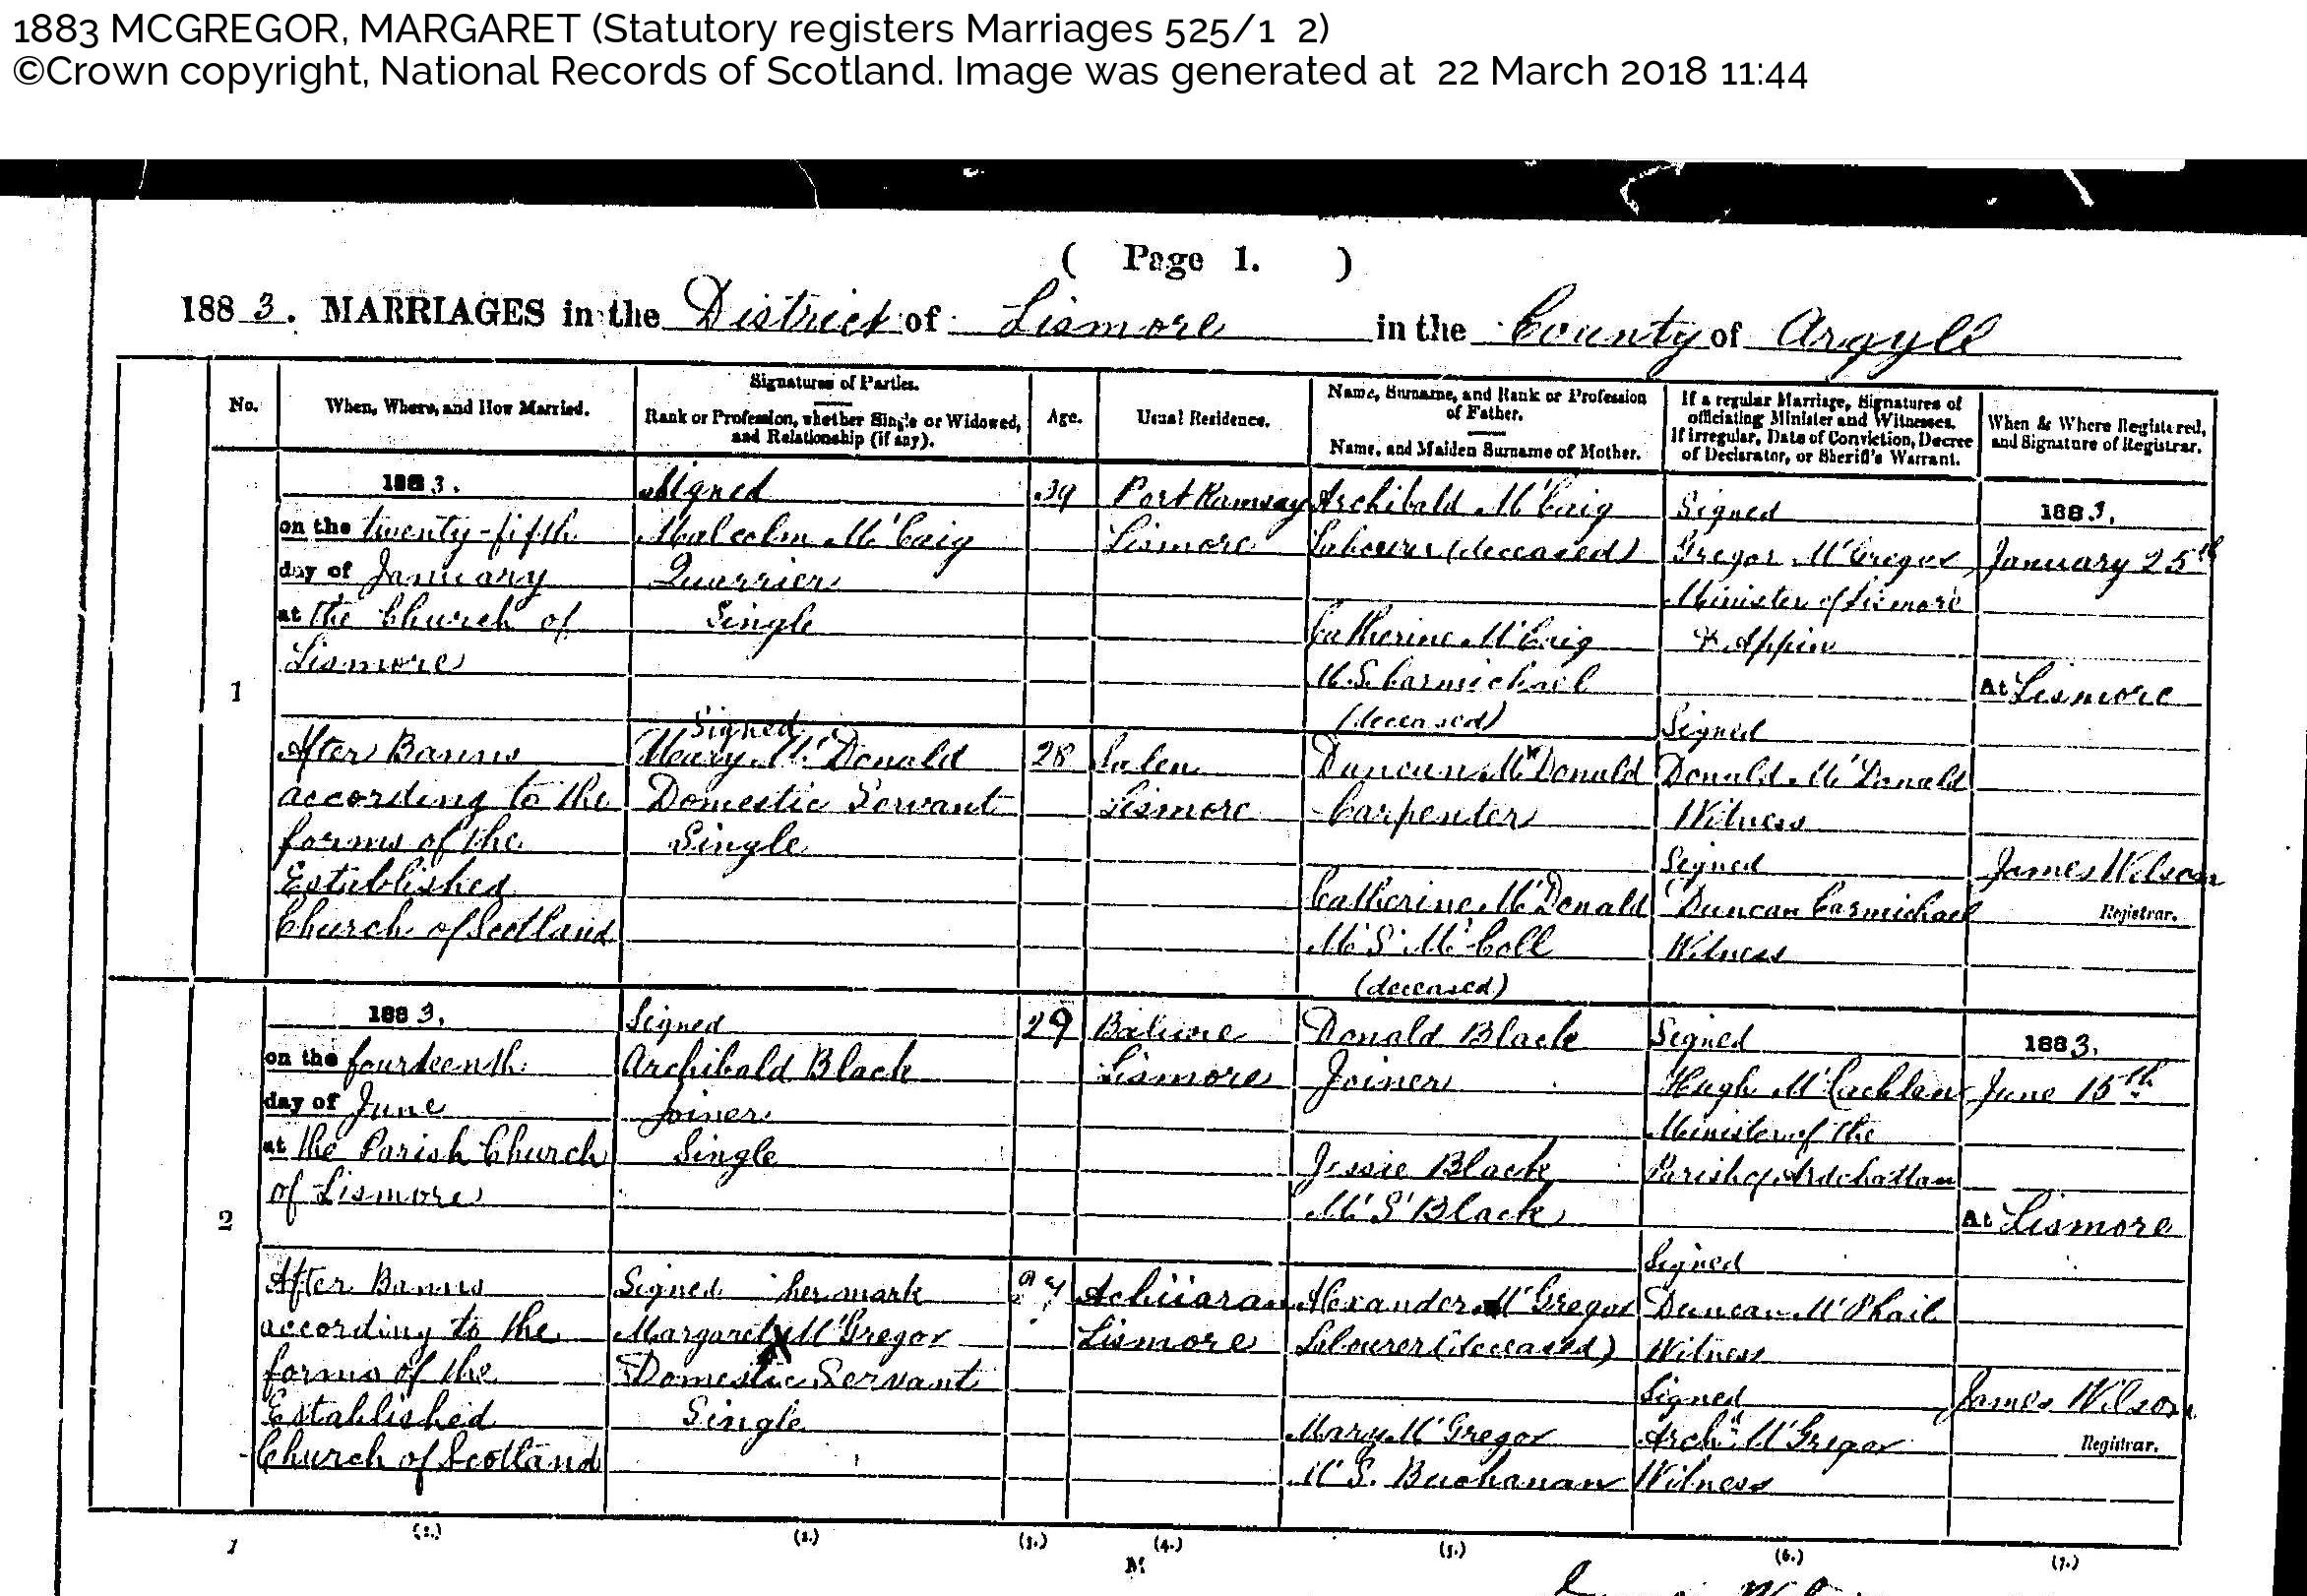 1883 MCGREGOR, MARGARET (Statutory registers Marriages 525/1 2)
©Crown copyright, National Records of Scotland. Image was generated at 22 March 2018 11:44
( Page 1. )
1883. MARRIAGES in the District of Lismore in the County of Argyll
No.
When, Where, and How Married.
Signatures of Parties.
Rank or Profession, whether Single or Widowed,
and Relationship (if any).
Age.
Usual Residence.
Name, Surname, and Rank or Profession
of Father.
Name, and Maiden Surname of Mother.
If a regular Marriage, Signatures of
officiating Minister and Witnesses.
If irregular, Date of Conviction, Decree
of Declarator, or Sheriff's Warrant.
When & Where Registered,
and Signature of Registrar.
1
1883.
on the twenty-fifth
day of January
at the Church of
Lismore
After Banns
according to the
forms of the
Established
Church of Scotland
Signed
Malcolm McCaig
Quarrier
Single
Signed
Mary McDonald
Domestic Servant
Single
39
28
Port Ramsay
Lismore
Salen
Lismore
Archibald McCaig
Labourer (deceased)
Catherine McCaig
M.S. Carmichael
(deceased)
Duncan McDonald
Carpenter
Catherine McDonald
M.S. McColl
(deceased)
Signed
Gregor McGregor
Minister of Lismore
& Appin
Signed
Donald McDonald
Witness
Signed
Duncan Carmichael
Witness
1883.
January 25th
At Lismore
James Wilson
Registrar.
2
1883.
on the fourteenth
day of June
at the Parish Church
of Lismore
After Banns
according to the
forms of the
Established
Church of Scotland
Signed
Archibald Black
Joiner
Single
Signed her mark
Margaret X McGregor
Domestic Servant
Single
29
Lismore
Achuaran
Lismore
Donald Black
Joiner
Jessie Black
M.S. Black
Alexander McGregor
Labourer (deceased)
Mary McGregor
M.S. Buchanan
Signed
Hugh McLachlan
Minister of the
Parish of Ardchattan
Signed
Duncan McPhail
Witness
Signed
Archd McGregor
Witness
1883.
June 15th
At Lismore
James Wilson
Registrar.
1
(1.) (2.) (3.) (4.) (5.) (6.) (7.)
M